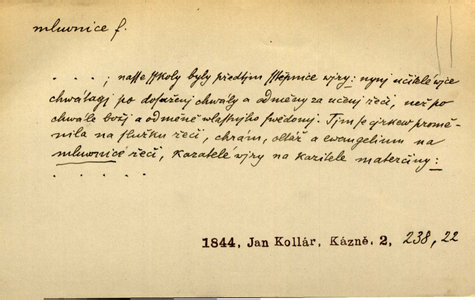 mluwnice f.
. . . . ; nasse sskoly byly předtým sstěpnice wjry: nynj učitelé wjce
chwátagj po dosažený chwály a odměny za učenj řečj, než po
chwále božj a odměně wlastnjho swědomj. Tjm se cjrkew promě-
nila na služku řečj, chrám, oltář a ewangelium na
mluwnicé řečj, kazatelé wjry na kazitele materčiny:
. . . . .
1844, Jan Kollár, Kázně. 2, 238, 22